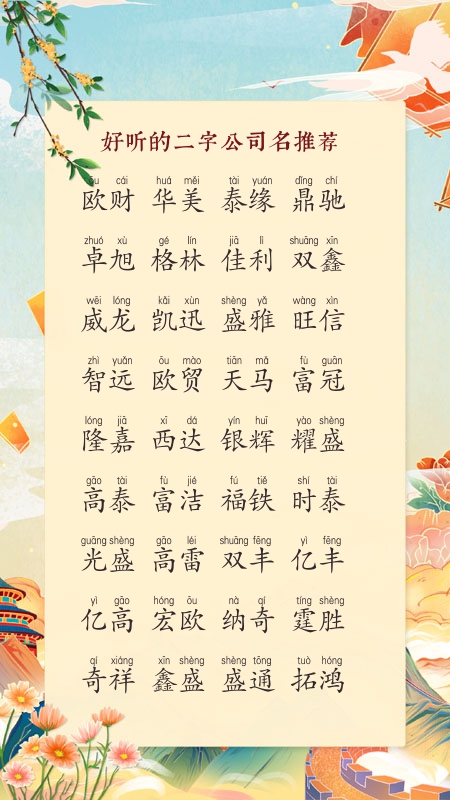 好听的二字公司名推荐
ōu cái huá měi tài yuán dǐng chí
欧财 华美 泰缘 鼎驰
zhuó xù gé lín jiā lì shuāng xīn
卓旭 格林 佳利 双鑫
wēi lóng kǎi xùn shèng yǎ wàng xìn
威龙 凯迅 盛雅 旺信
zhì yuǎn ōu mào tiān mǎ fù guān
智远 欧贸 天马 富冠
lóng jiā xī dá yín huī yào shèng
隆嘉 西达 银辉 耀盛
gāo tài fù jié fú tiě shí tài
高泰 富洁 福铁 时泰
guāng shèng gāo léi shuāng fēng yì fēng
光盛 高雷 双丰 亿丰
yì gāo hóng ōu nà qí tíng shèng
亿高 宏欧 纳奇 霆胜
qí xiáng xīn shèng shèng tōng tuò hóng
奇祥 鑫盛 盛通 拓鸿